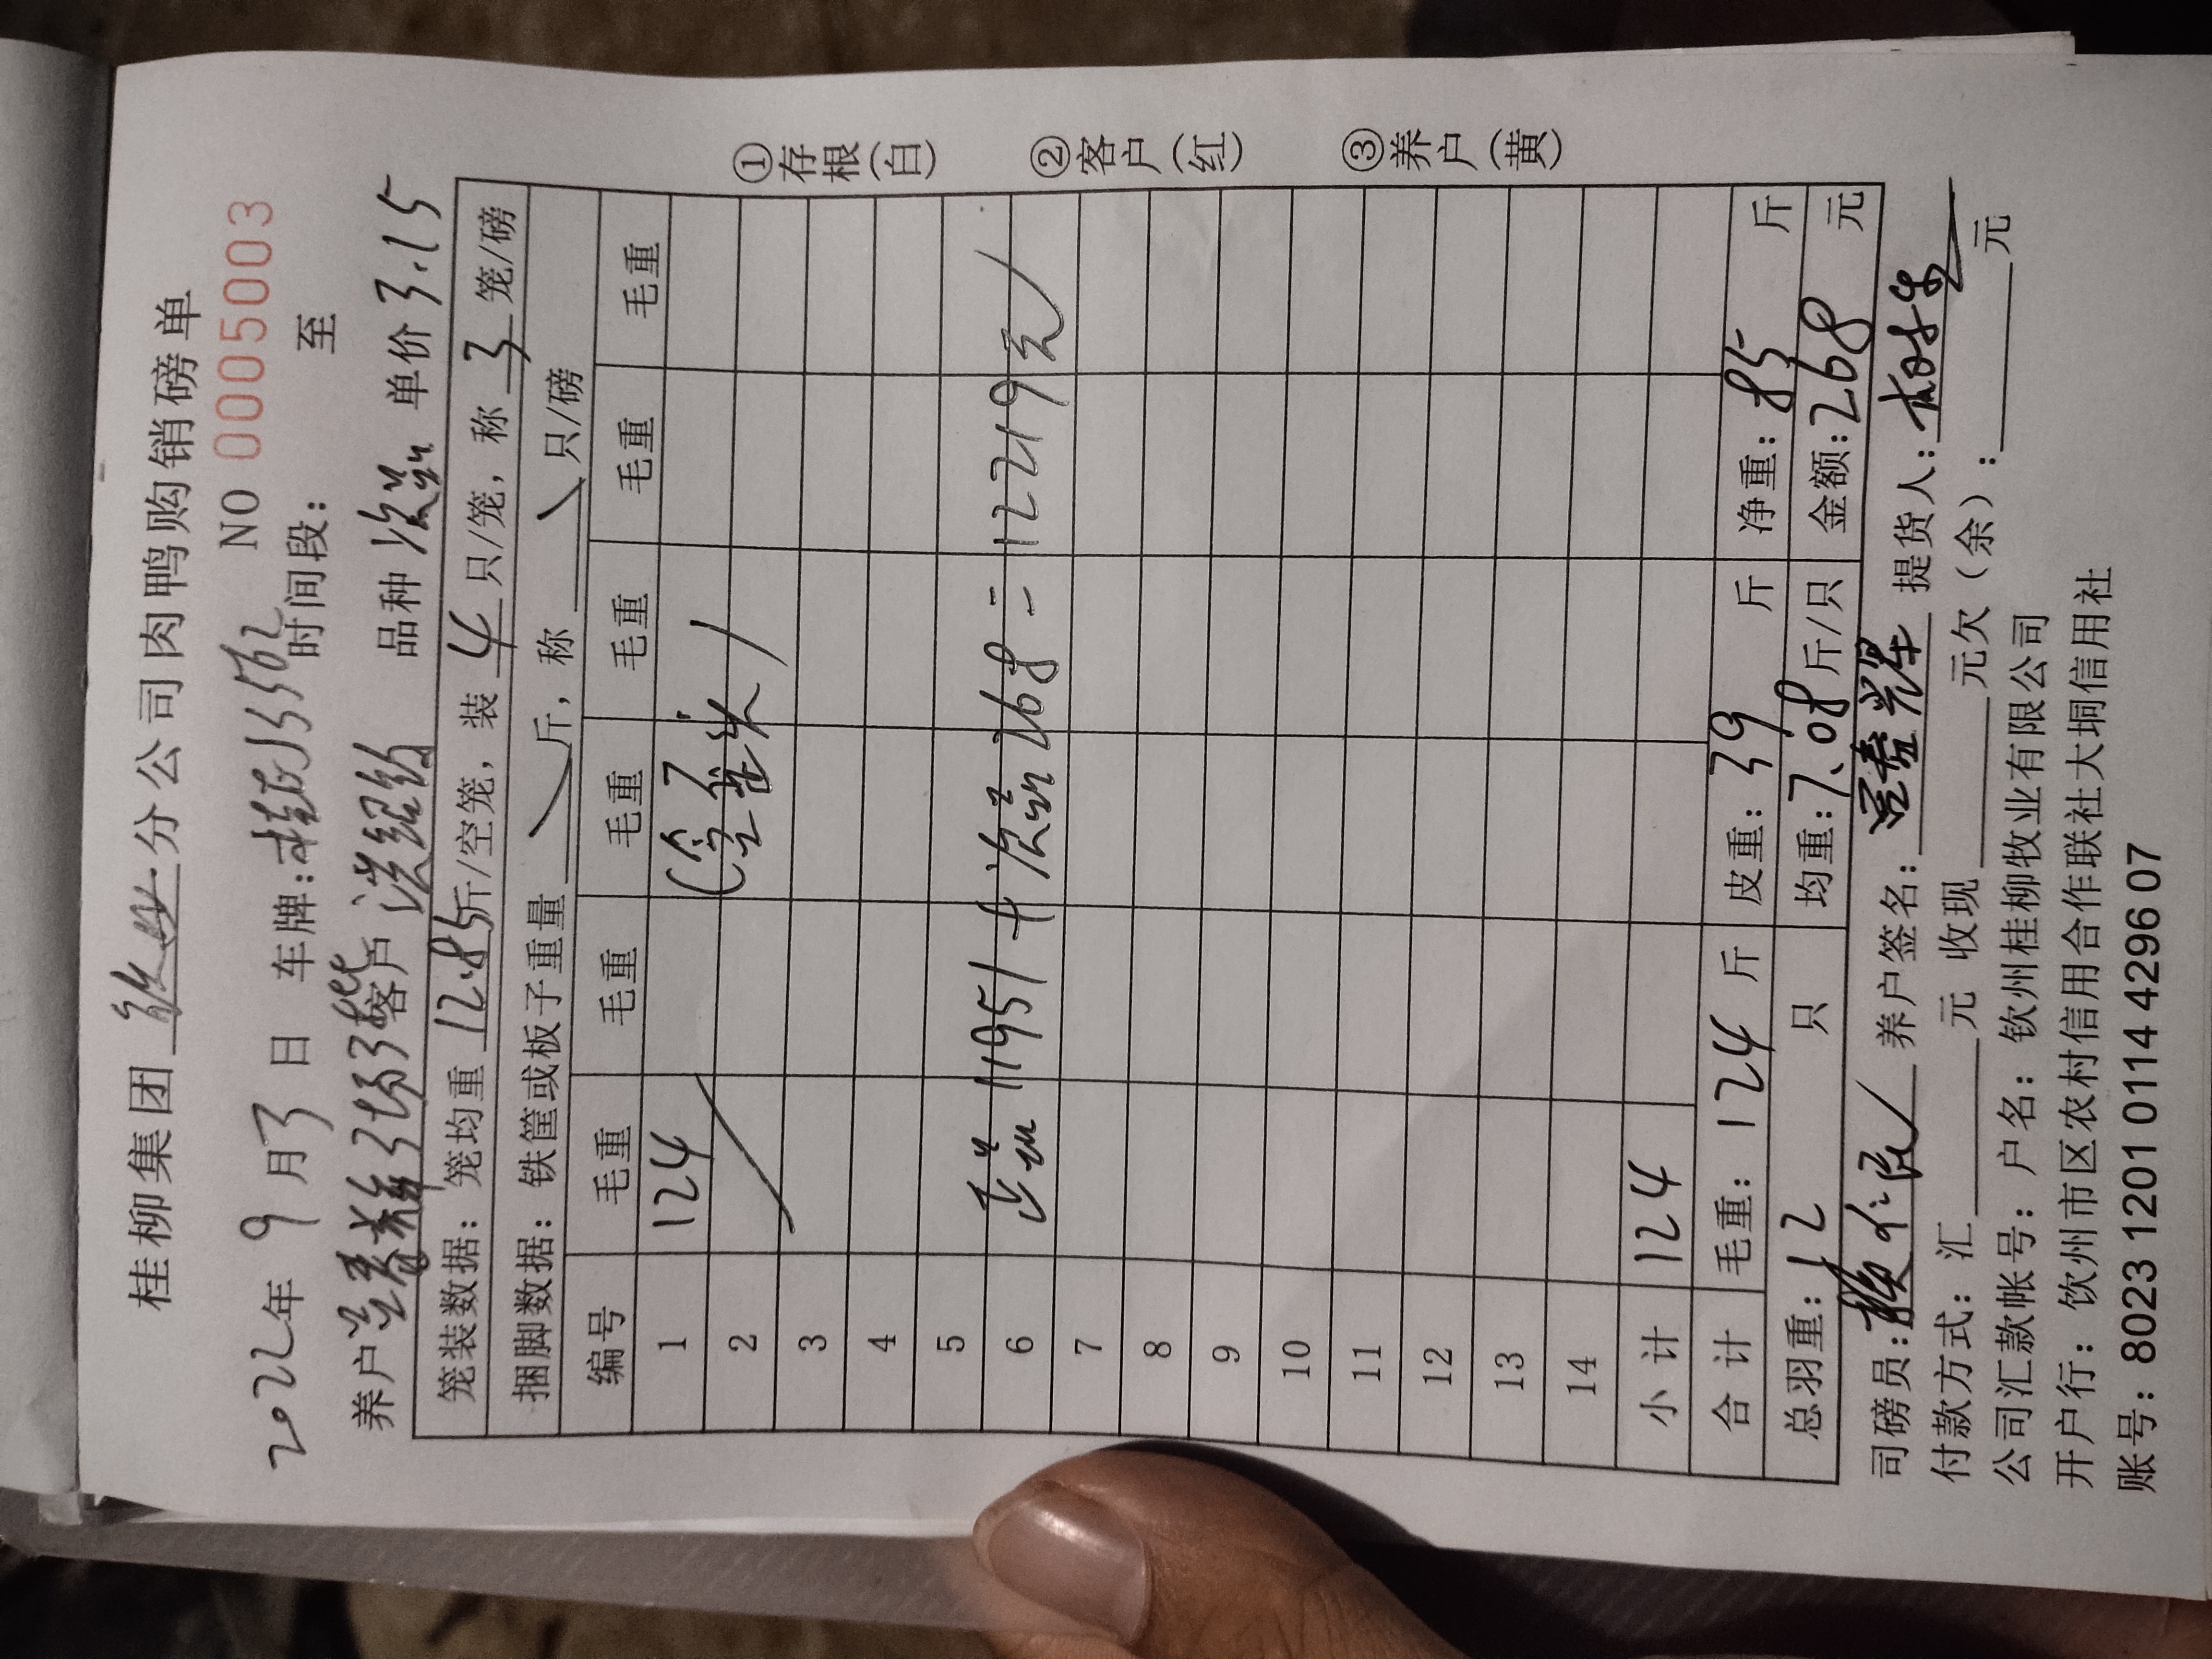 桂柳集团 分公司肉鸭购销磅单
NO 0005003
2022年 9 月 3 日 车牌: 时间段: 至
养户 客户 洪绍 品种 次品 单价 3.15
笼装数据: 笼均重 12.85 斤/空笼, 装 4 只/笼, 称 3 笼/磅
捆脚数据: 铁筐或板子重量 斤, 称 只/磅
编号 毛重 毛重 毛重 毛重 毛重 毛重
1 124
2
3
4
5
6 正品 11951 + 次品 268 = 12219元
7
8
9
10
11
12
13
14
小 计 124
合 计 毛重: 124 斤 皮重: 39 斤 净重: 85 斤
总羽重: 12 只 均重: 7.08 斤/只 金额: 268 元
司磅员: 养户签名: 提货人:
付款方式: 汇 元 收现 元欠(余): 元
公司汇款帐号: 户名: 钦州桂柳牧业有限公司
开户行: 钦州市区农村信用合作联社大垌信用社
账号: 8023 1201 0114 4296 07
①存根(白)
②客户(红)
③养户(黄)